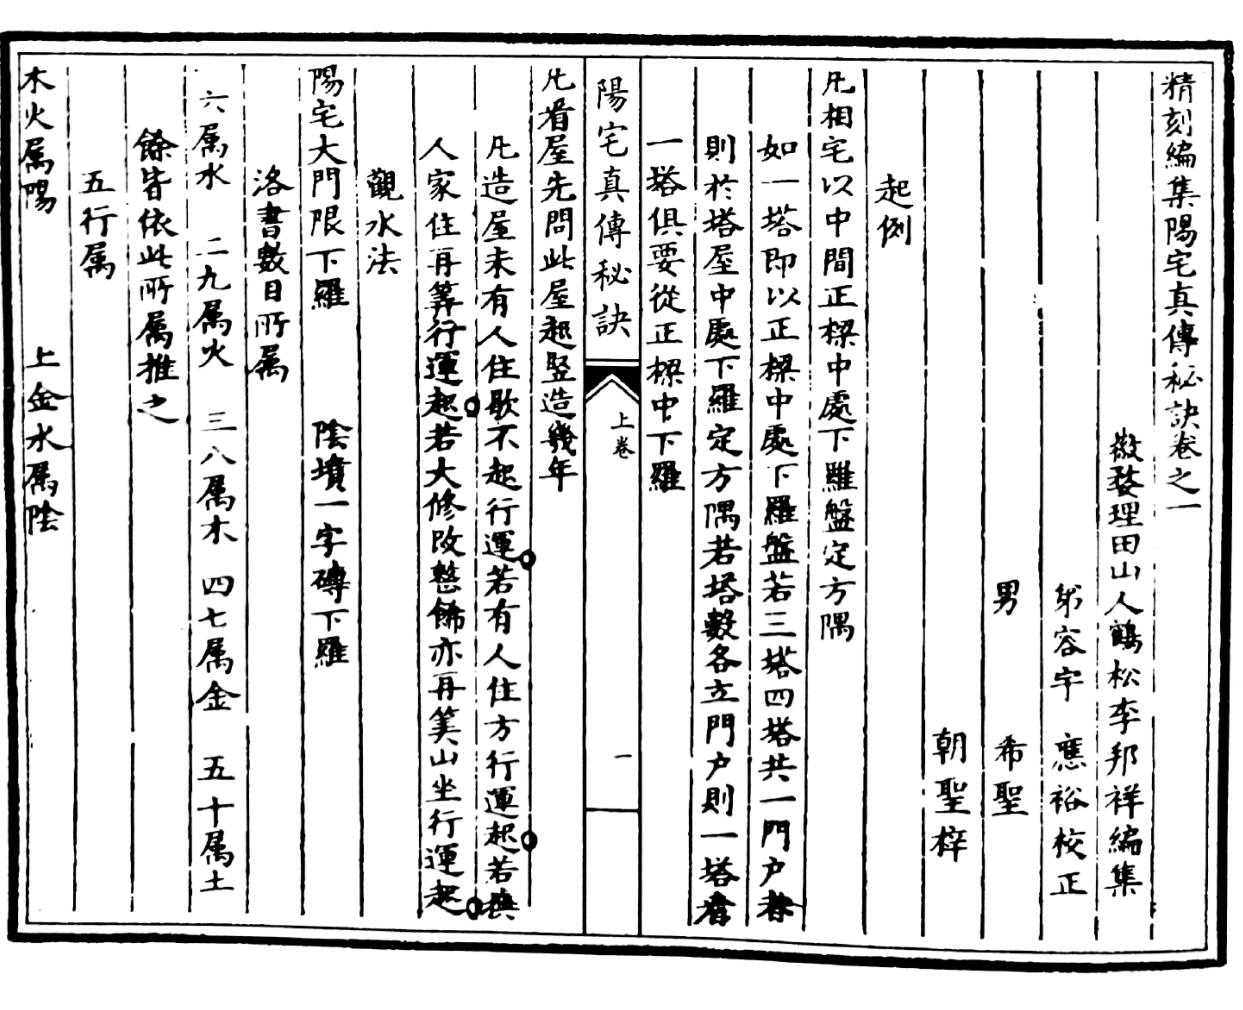 精刻編集陽宅真傳秘訣卷之一
徽婺理田山人鶴松李邦祥編集
弟容宇 應裕校正
男 希聖
朝聖梓
起例
凡相宅以中間正樑中處下羅盤定方隅
如一塔即以正樑中處下羅盤若三塔四塔共一門户者
則於塔屋中處下羅定方隅若塔數各立門户則一塔看
一塔俱要從正樑中下羅
陽宅真傳秘訣
上卷
一
凡看屋先問此屋起竪造幾年
凡造屋未有人住歇不起行運若有人住方行運起若換
人家住再筭行運起若大修改整飾亦再筭山坐行運起
觀水法
陽宅大門限下羅 陰墳一字磚下羅
洛書數目所属
六属水 二九属火 三八属木 四七属金 五十属土
餘皆依此所属推之
五行属
木火属陽 上金水属陰